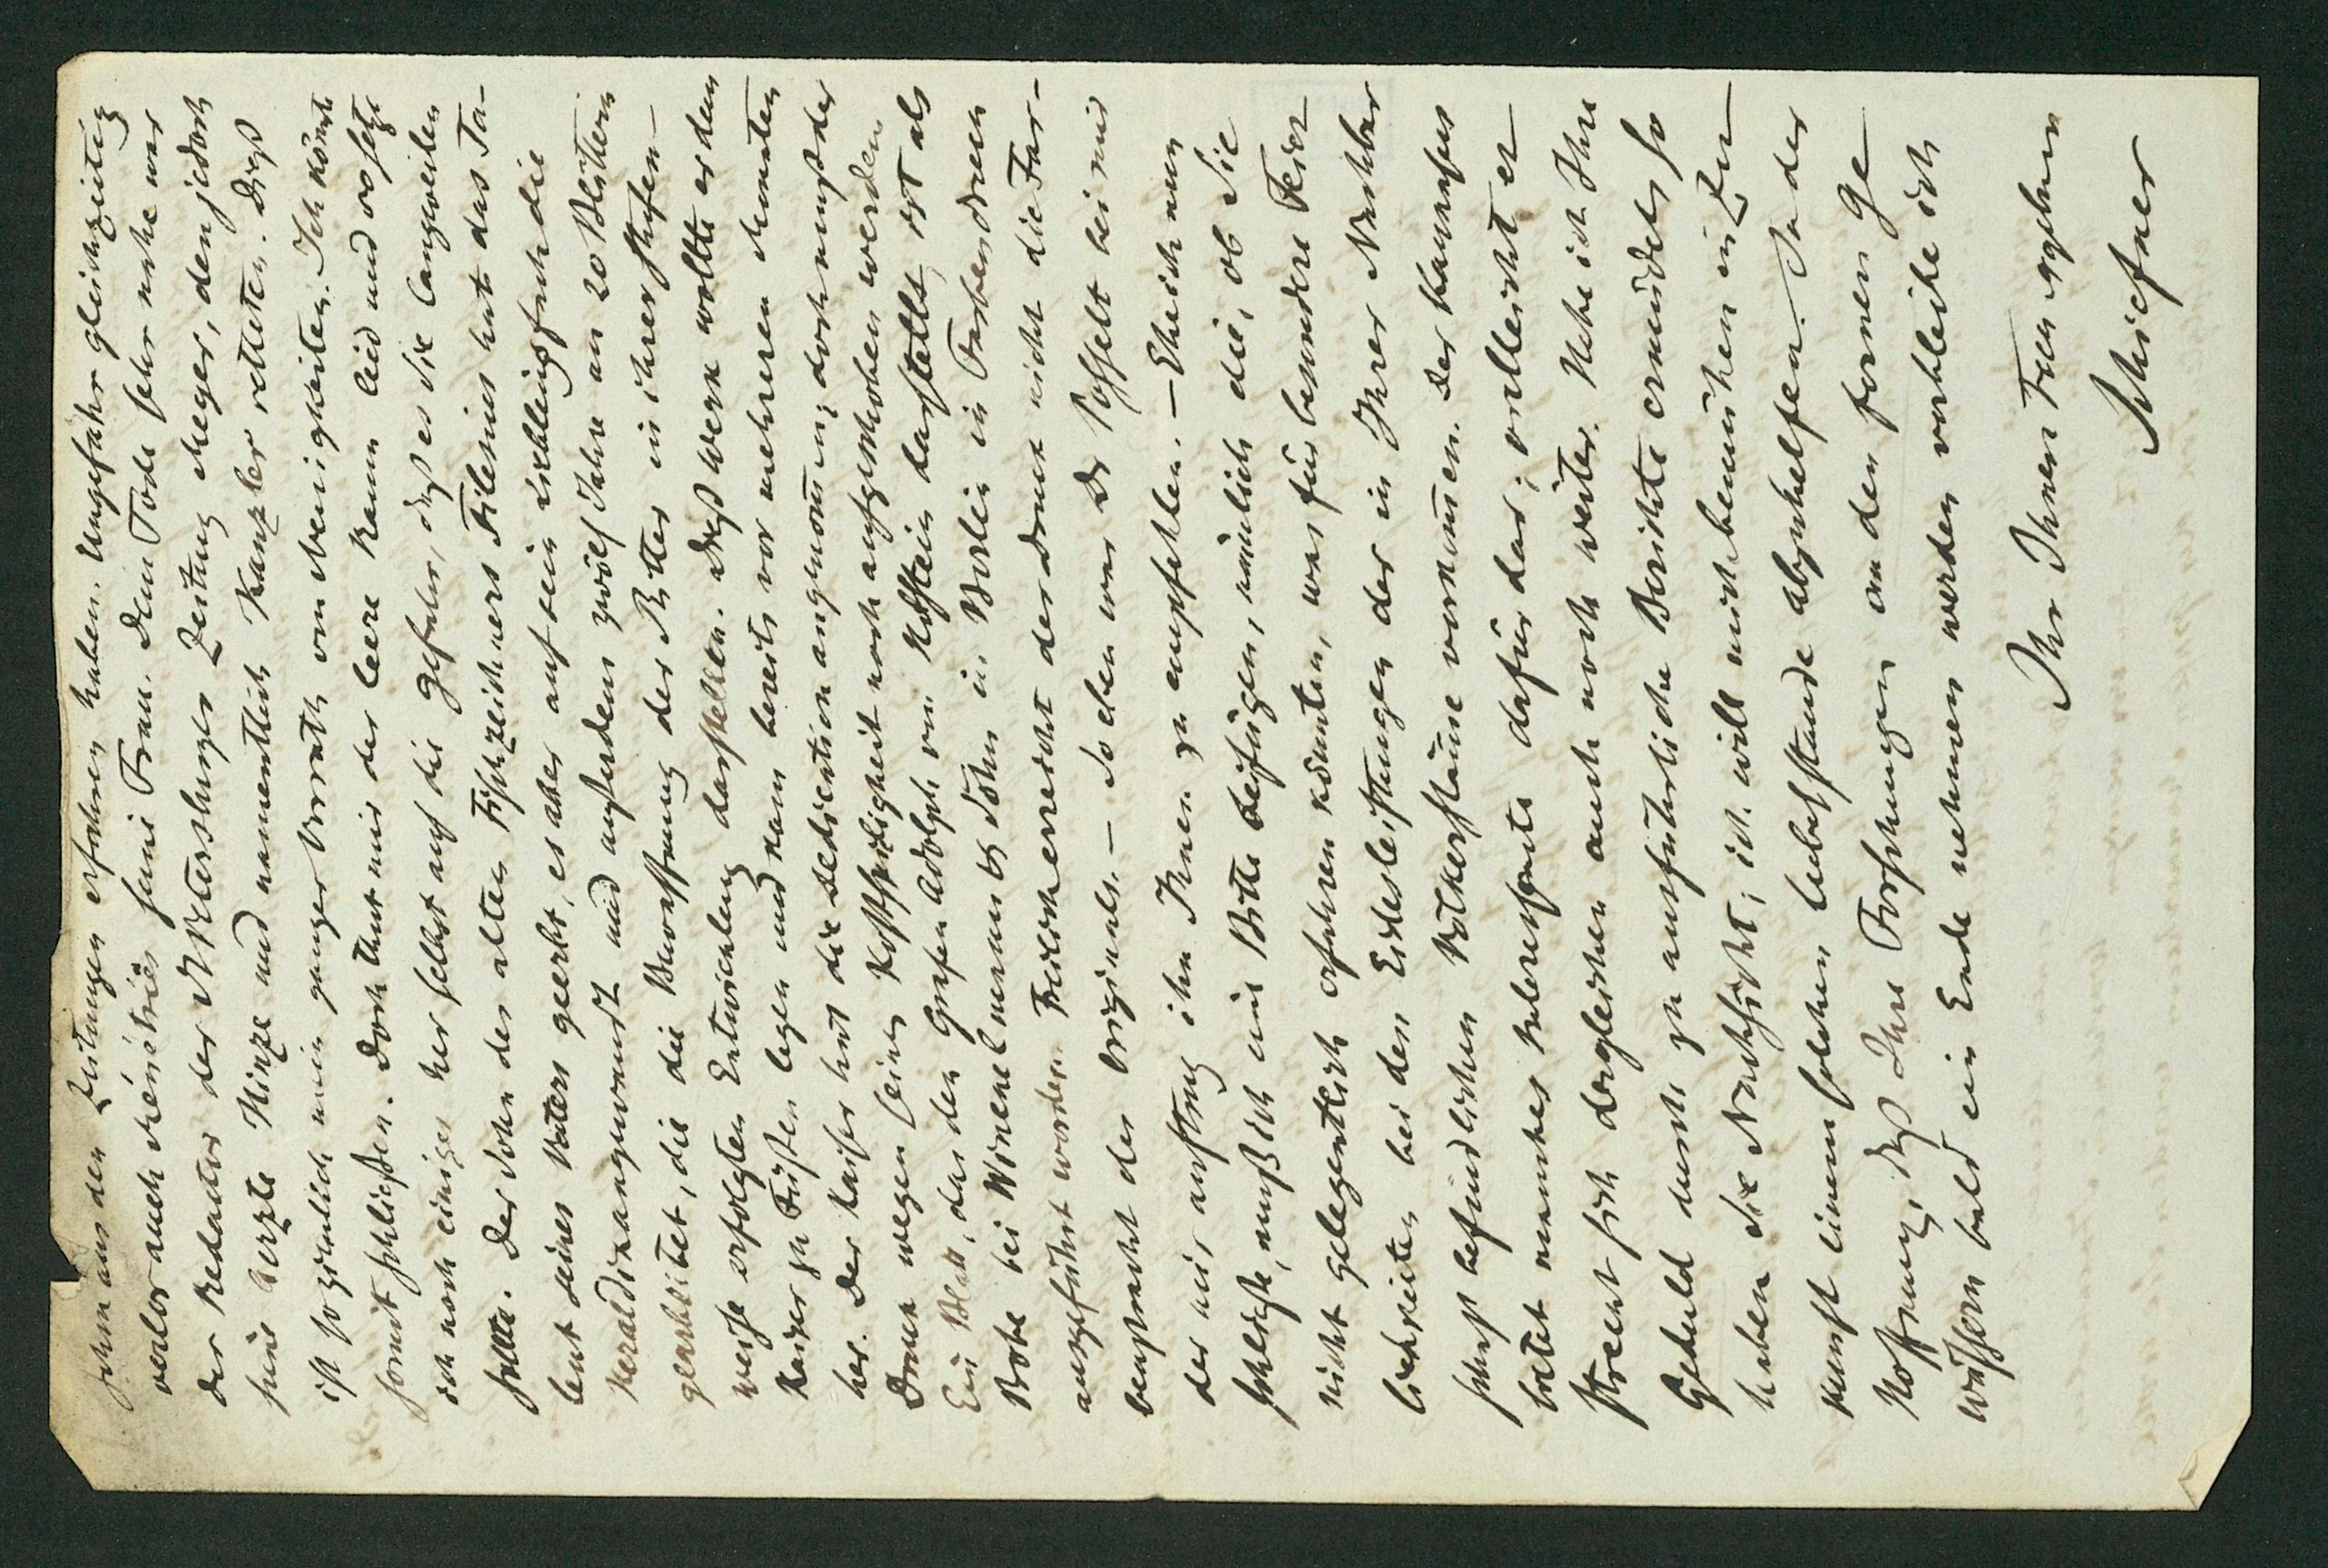 schon aus den Zeitungen erfahren haben. Ungefähr gleichzeitig
verlor auch Ménétriés seine Frau. Dem Tode sehr nahe war
der Redactor der St Petersburger Zeitung Meyer, den jedoch
seine Aerzte Hinze und namentlich Kanzler retteten. Dieß
ist so ziemlich mein ganzer Vorrath von Neuigkeiten. Ich könnte
somit schließen. Doch thut mir der leere Raum leid und so setze
ich noch einiges her selbst auf die Gefahr, daß es Sie langweilen
sollte. Der Sohn des alten Fischzeichners Tilesius hat das Ta-
lent seines Vaters geerbt, es aber auf sein Lieblingsfach die
Heraldik angewandt und außerdem zwölf Jahre an 20 Blättern
gearbeitet, die die Bewaffnung der Ritter in ihrer stufen-
weise erfolgten Entwicklung darstellen. Dieß Werk wollte er dem
Kaiser zu Füßen legen und kam bereits vor mehreren Monaten
her. Der Kaiser hat die Dedication angenommen, doch muß der
Druck wegen seiner Kostspieligkeit noch aufgeschoben werden.
Ein Blatt, das den Grafen Adolph von Holstein darstellt, ist als
Probe bei Winckelmann & Söhne in Berlin in Farbendruck
ausgeführt worden. Freilich erreicht der Druck nicht die Far-
benpracht des Originals. – So eben war Dr Posselt bei mir
der mir auftrug ihn Ihnen zu empfehlen. – Ehe ich nun
schließe, muß ich eine Bitte beifügen, nämlich die, ob Sie
nicht gelegentlich erfahren könnten, was für besondere Feier
lichkeiten bei den Eidesleistungen der in Ihrer Nachbar
schaft befindlichen Völkerstämme vorkommen. Der Kaukasus
bietet manches Interessante dafür dar; vielleicht er
streckt sich dergleichen auch noch weiter. Habe ich Ihre
Geduld durch zu ausführliche Berichte ermüdet, so
haben Sie Nachsicht; ich will mich bemühen in Zu-
kunft einem solchen Uebelstande abzuhelfen. In der
Hoffnung, daß Ihre Forschungen an den fernen Ge
wässern bald ein Ende nehmen werden verbleibe ich
Ihr Ihnen treu ergebener
Schiefner